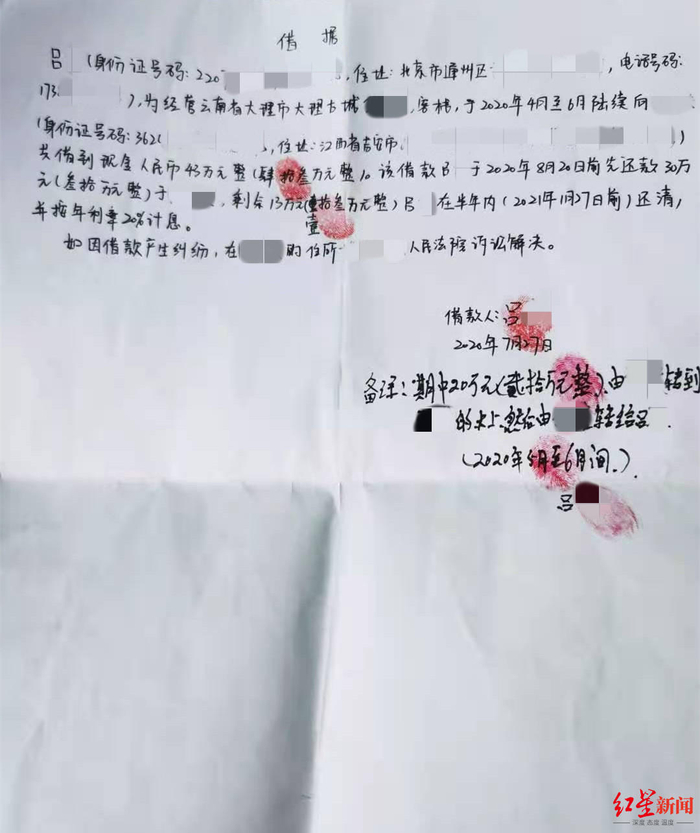 借据
吕 (身份证号码: 220 , 住址: 北京市通州区 , 电话号码:
173 ), 为经营云南省大理市大理古城 客栈, 于2020年4月至6月陆续向
(身份证号码: 362 , 住址: 江西省吉安市 )
共借到现金人民币43万元整(肆拾叁万元整)。该借款吕 于2020年8月20日前先还款30万
元(叁拾万元整)于 , 剩余13万元(壹拾叁万元整)吕 在牛年内(2021年1月27日前)还清,
壹
并按年利率20%计息。
如因借款产生纠纷, 在 的住所 人民法院诉讼解决。
借款人: 吕
2020年7月27日
备注: 期中20万元(贰拾万元整)由 转到
的卡上然后由 转给吕
(2020年5月至6月间.)
吕
红星新闻
深度 态度 温度